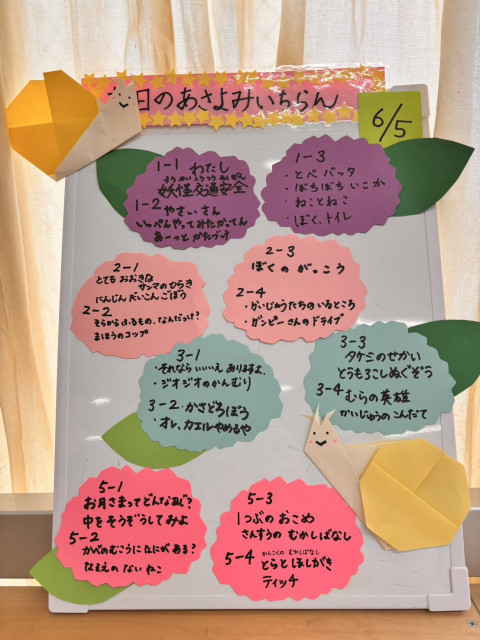 日のあさよみいちらん
6/5
1-1 わたし
ようかいこうつうあんぜん
妖怪交通安全
1-2 やさいさん
いっぺんやってみたかってん
あーっと かたづけ
1-3
・とべ バッタ
・ぼちぼち いこか
・ねことねこ
・ぼく、トイレ
2-1
とても おおきな
サンマのひらき
にんじん だいこん ごぼう
2-2
そらから ふるもの、なんだっけ?
まほうのコップ
2-3
ぼくの がっこう
2-4
・かいじゅうたちのいるところ
・ガンピーさんのドライブ
3-1
・それなら いいいえ ありますよ
・ジオジオのかんむり
3-2・かさどろぼう
・オレ、カエルやめるや
3-3
タケミのせかい
とうもろこしぬぐぞう
3-4 むらの英雄
かいじゅうの こんだて
5-1
お月さまってどんなあじ?
中をそうぞうしてみよ
5-2
かべのむこうになにがある?
なまえの ない ねこ
5-3
1つぶの おこめ
さんすうの むかしばなし
かんこくの むかしばなし
5-4 とらと ほしがき
ティッチ